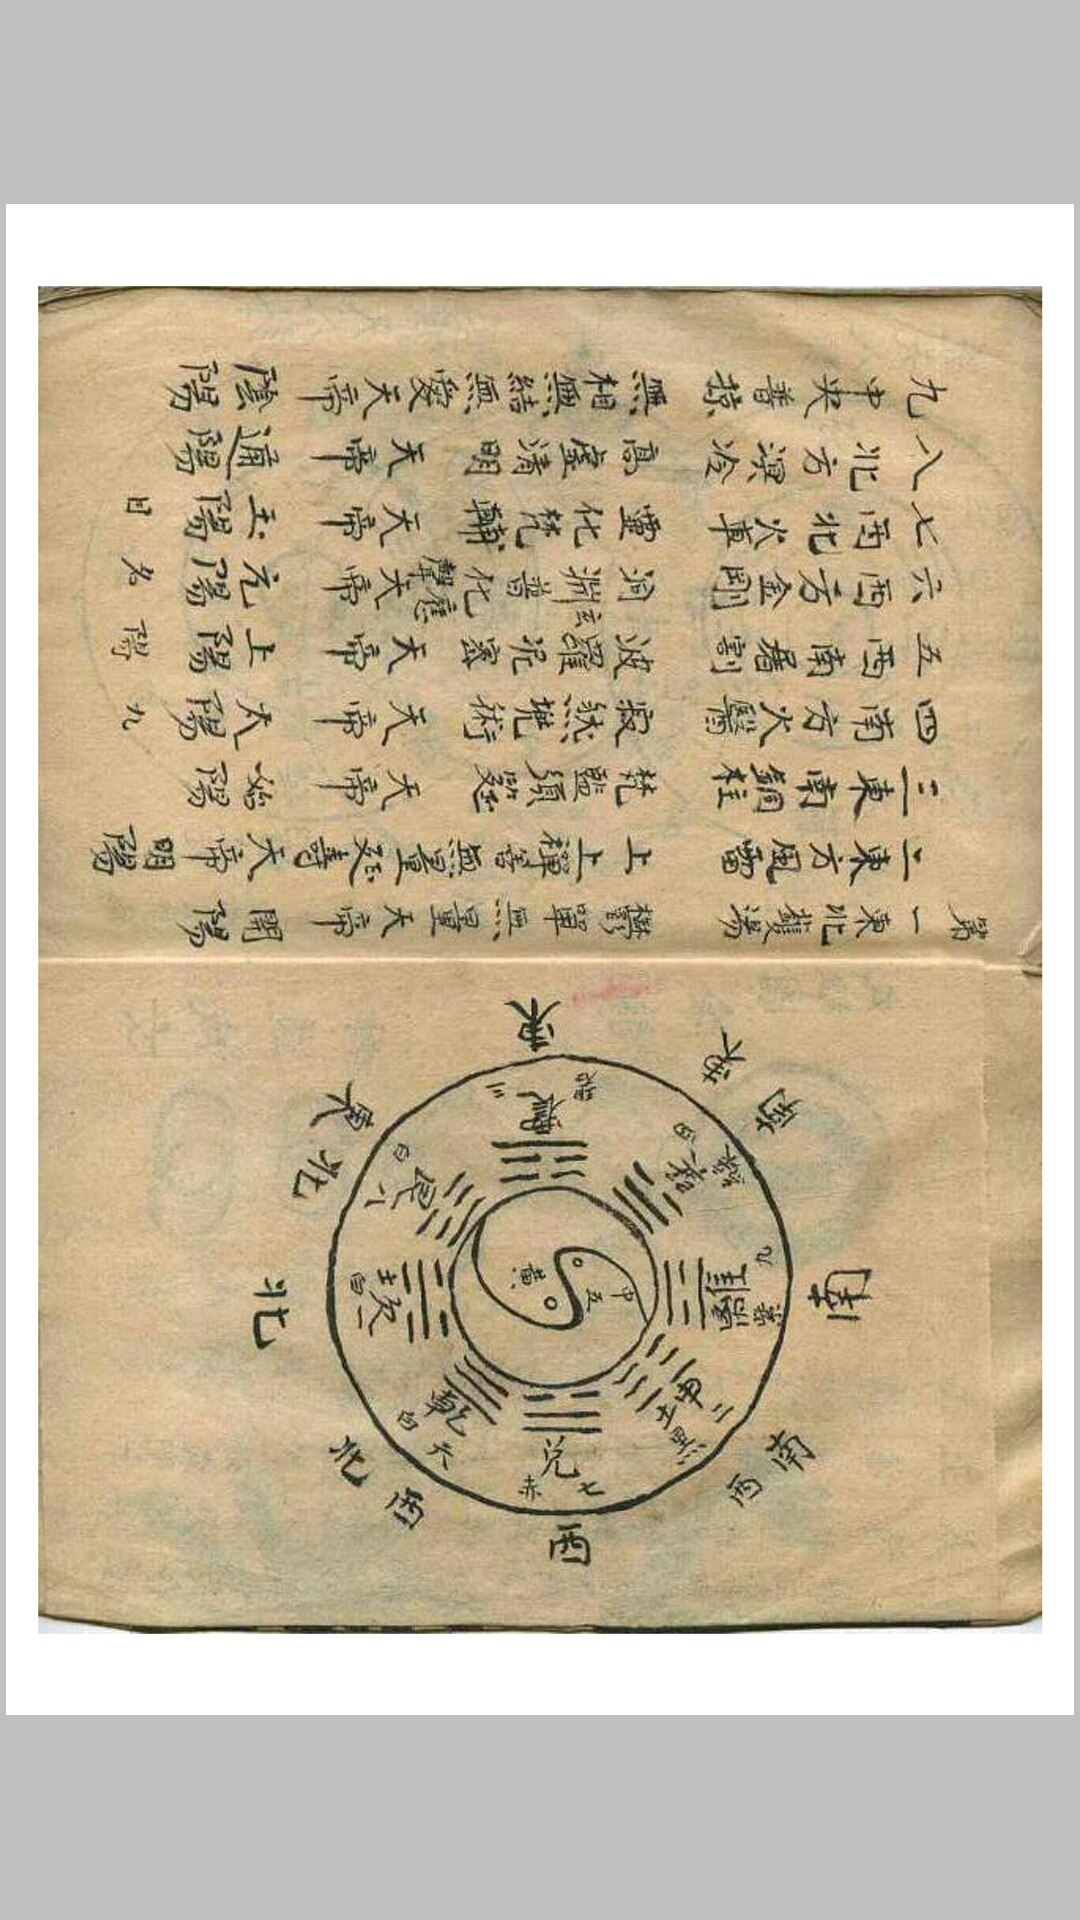 第一東北鑊湯 鬱單無量天帝 開陽
二東方風雷 上上禪善無量延壽天帝 明陽
三東南銅柱 梵監須延天帝 始陽
四南方火醫 寂然兜術天帝 太陽
五西南屠割 波羅泥蜜天帝 上陽
六西方金剛 洞淵玄普化應聲天帝 元陽
七西北火車 靈化梵輔天帝 玉陽
八北方溟冷 高虛清明天帝 通陽
九中央普掠 無相無結無愛天帝 陰陽
南
西南
西
西北
北
東北
東
東南
九
二 坤 土 黑
七 兌 赤
六 乾 白
一 坎 白
八 艮 白
三
四
中五
黃